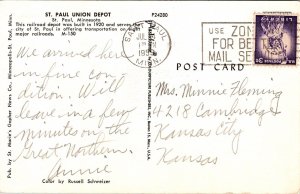 ST. PAUL UNION DEPOT
St. Paul, Minnesota
This railroad depot was built in 1920 and serves the
city of St. Paul in offering transportation on eight
major railroads. M-150
P24280
We arrived here
in fine con-
dition. Will
leave in a few
minutes on the
Great Northern.
Annie
Color by Russell Schweizer
Pub. by St. Marie's Gopher News Co., Minneapolis-St. Paul, Minn.
ST. PAUL
MINN.
USE ZON
FOR BE
MAIL SE
LIBERTY
3¢
POST CARD
Mrs. Minnie Fleming
4218 Cambridge
Kansas City
Kansas